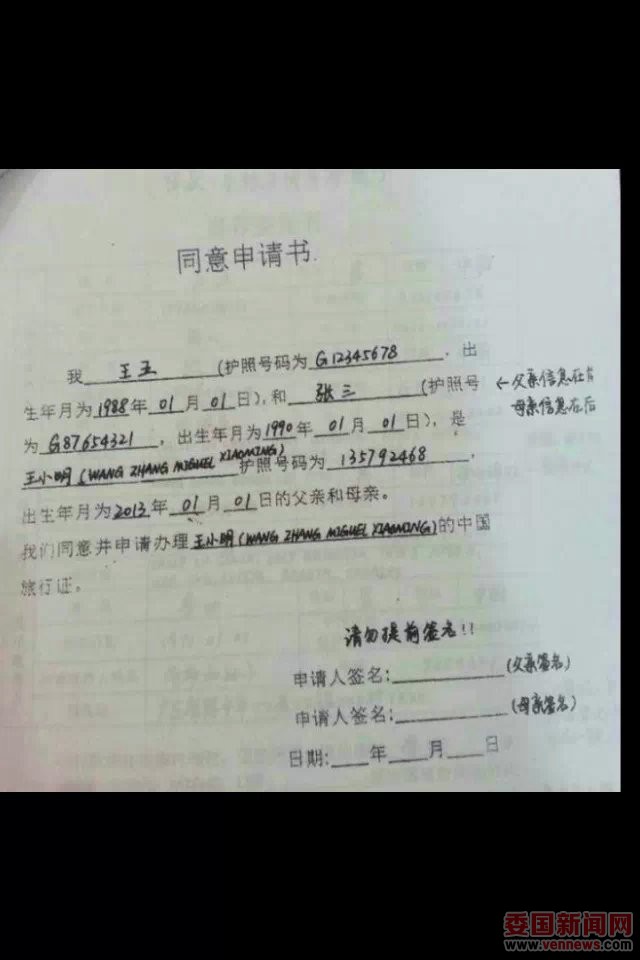 同意申请书
我 王五 (护照号码为 G12345678 ,出
生年月为1988年 01 月 01 日),和 张三 (护照号 ←父亲信息在前
为 G87654321 ,出生年月为1990年 01 月 01 日),是 母亲信息在后
王小明(WANG ZHANG MIGUEL XIAOMING)护照号码为 135792468 ,
出生年月为2013年 01 月 01 日的父亲和母亲。
我们同意并申请办理王小明(WANG ZHANG MIGUEL XIAOMING)的中国
旅行证。
请勿提前签名!!
申请人签名:__________(父亲签名)
申请人签名:__________(母亲签名)
日期:___年___月___日
委国新闻网
www.vennews.com